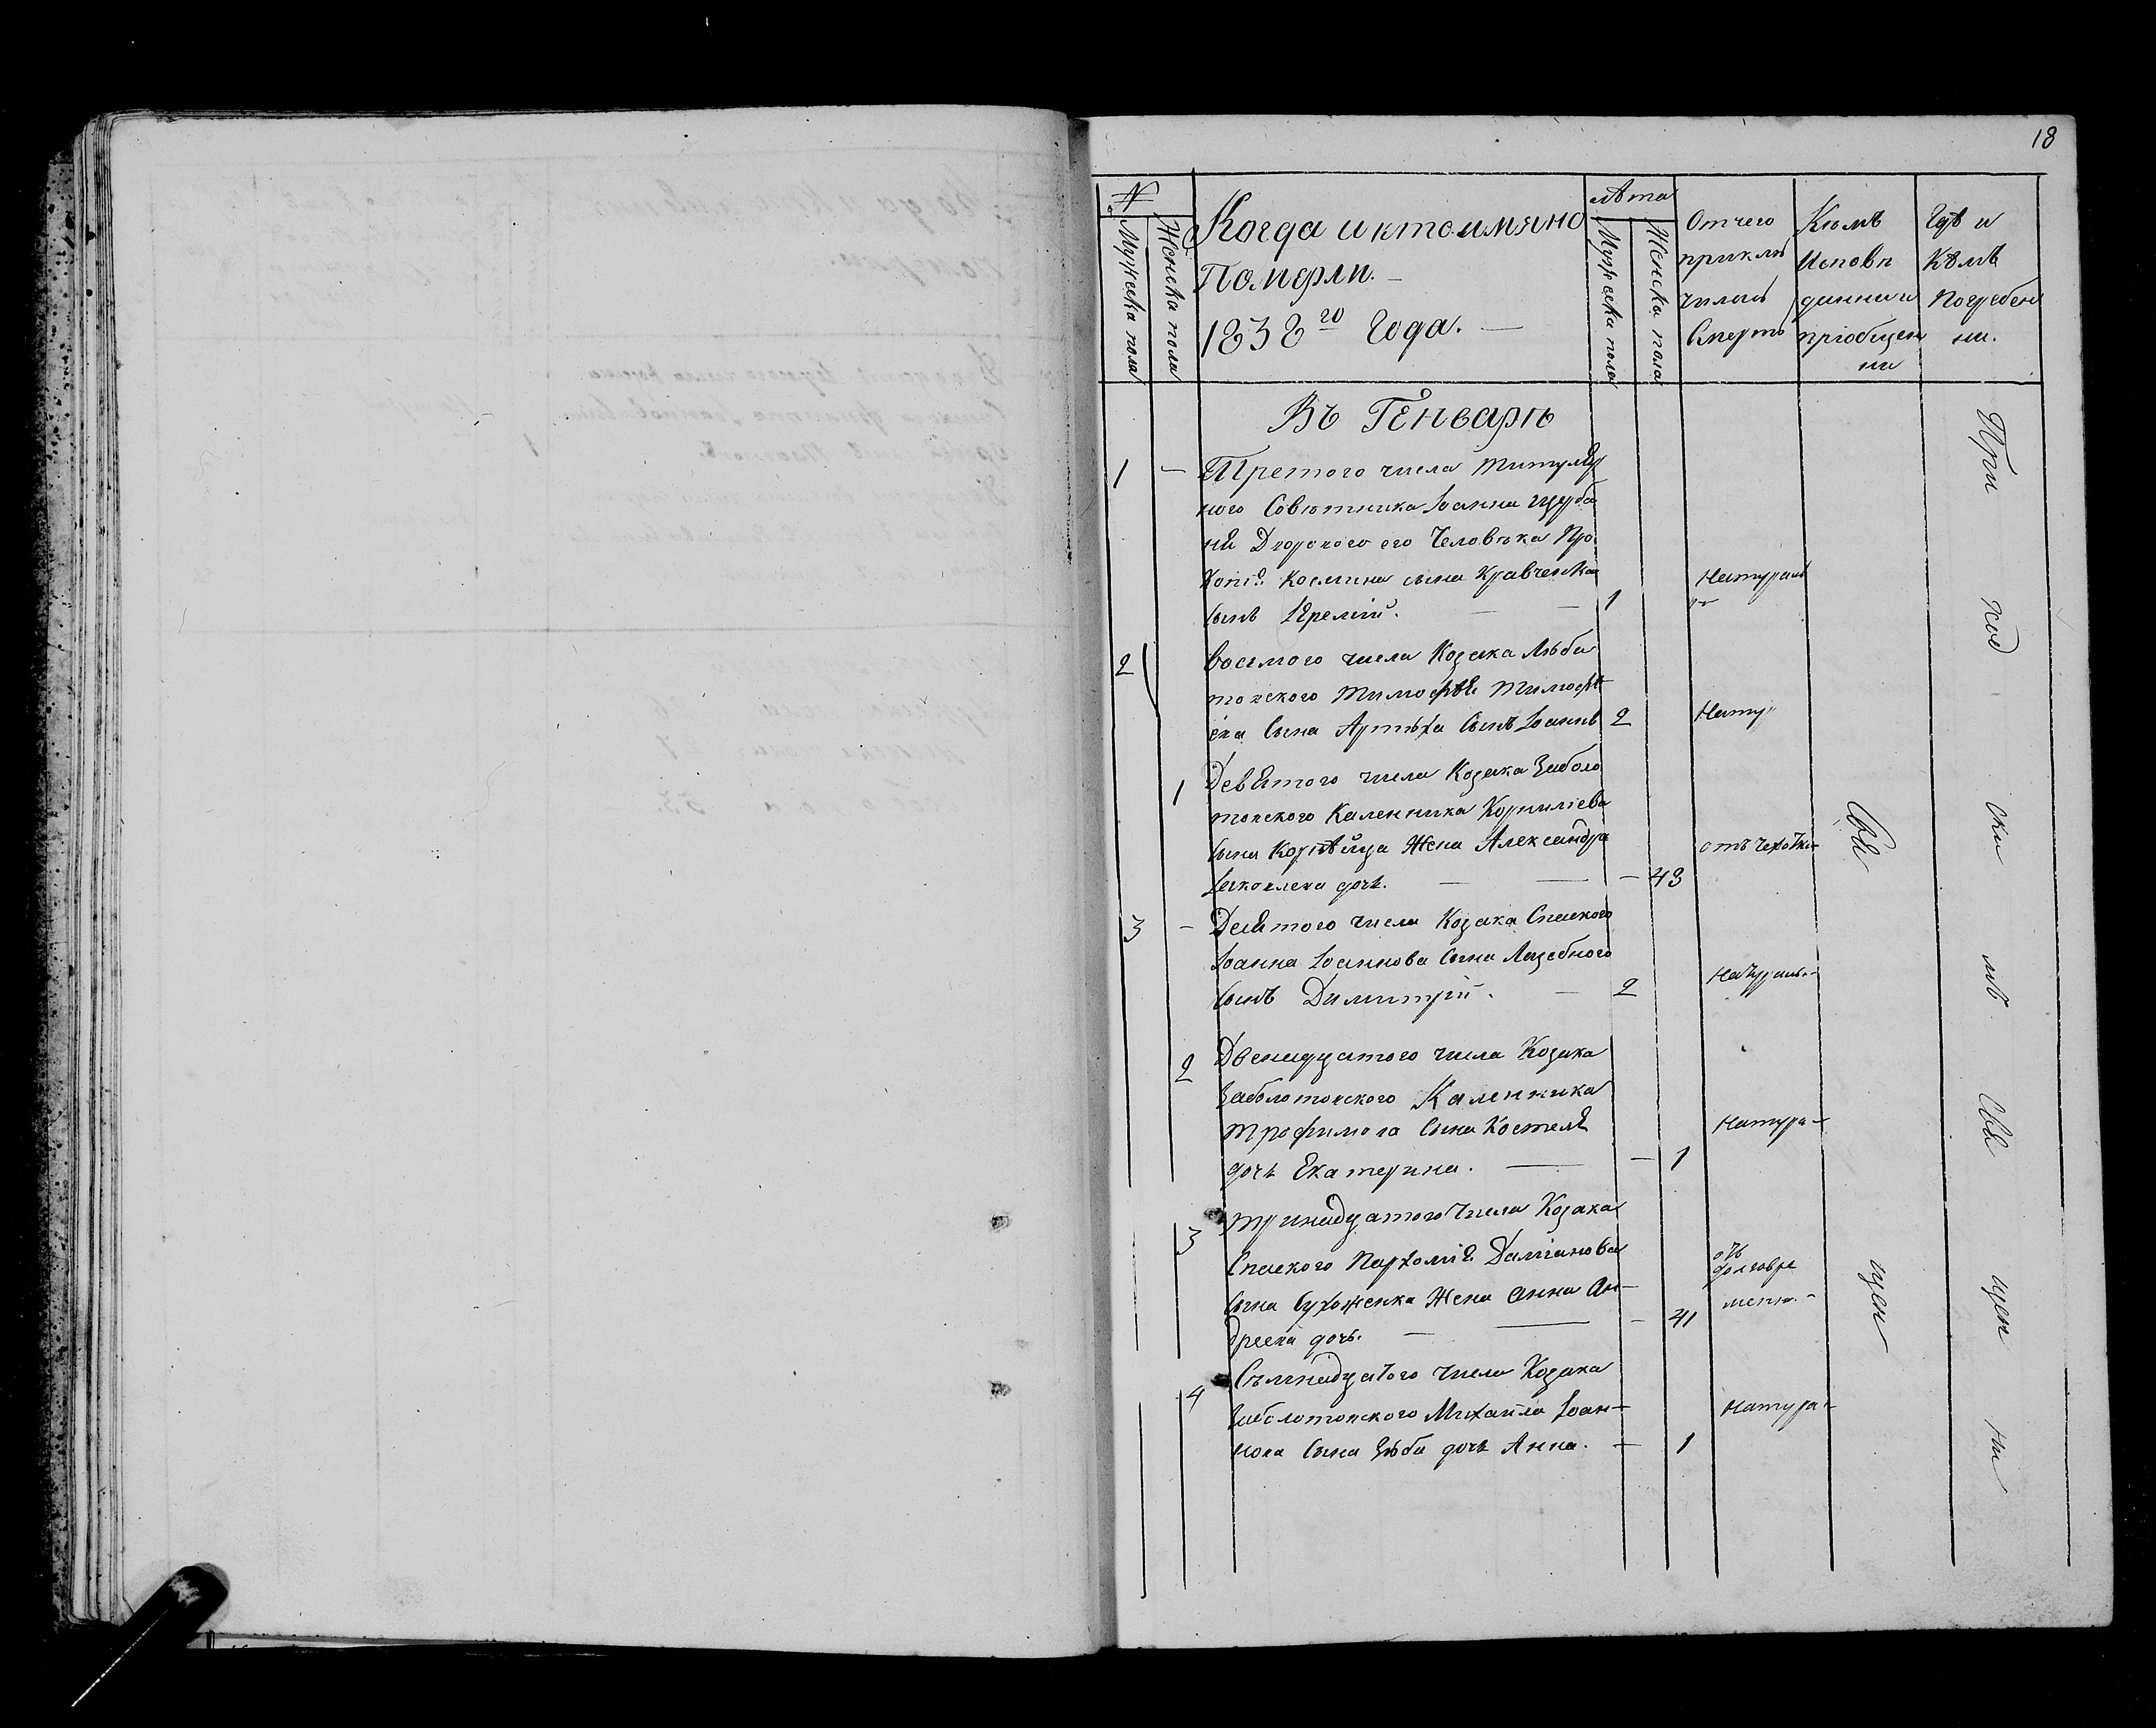 18
№
Мужеска пола
Женска пола
Когда и кто имяно
Померли.
1838го Года.
лѣта
Мужеска пола
Женска пола
От чего
приклю
чилась
Смерть
Кемъ
Исповѣ
данни и
пріобщен
ни
Гдѣ и
Кѣмъ
Погребен
ни.
Въ Генварѣ
1 Третого числа титуляр
ного Совѣтника Іоанна
Дворового его Человѣка Про
копія Космина сына Кравченка
сынъ Еремій. 1 Натураль
2 Восьмого числа Козака
Тимофѣя Тимофѣ
ева Сына Сынъ Іоаннъ 2 Нату
1 Девятого числа Козака Заболо
тонского Каленника Корниліева
сына Жена Александра
Іаковлева дочь. 43 отъ чехотки
3 Десятого числа Козака Спаского
Іоанна Іоаннова Сына Лазебного
сынъ Димитрій. 2 Натураль
2 Двенадцатого числа Козака
Заболотонского Каленника
Трофимова Сына Костеля
дочь Екатерина. 1 Натура
3 Тринадцатого Числа Козака
Спаского Пархомія Даміанова
Сына Сухоженка Жена Анна Ан-
дреева дочь. 41 отъ долговре
менн.
4 Семнадцатого числа Козака
Заболотонского Михаила Іоан-
нова Сына Зюба дочь Анна. 1 Натура
Свя
щен
При
ход
ски
мъ
Свя
щен
ни